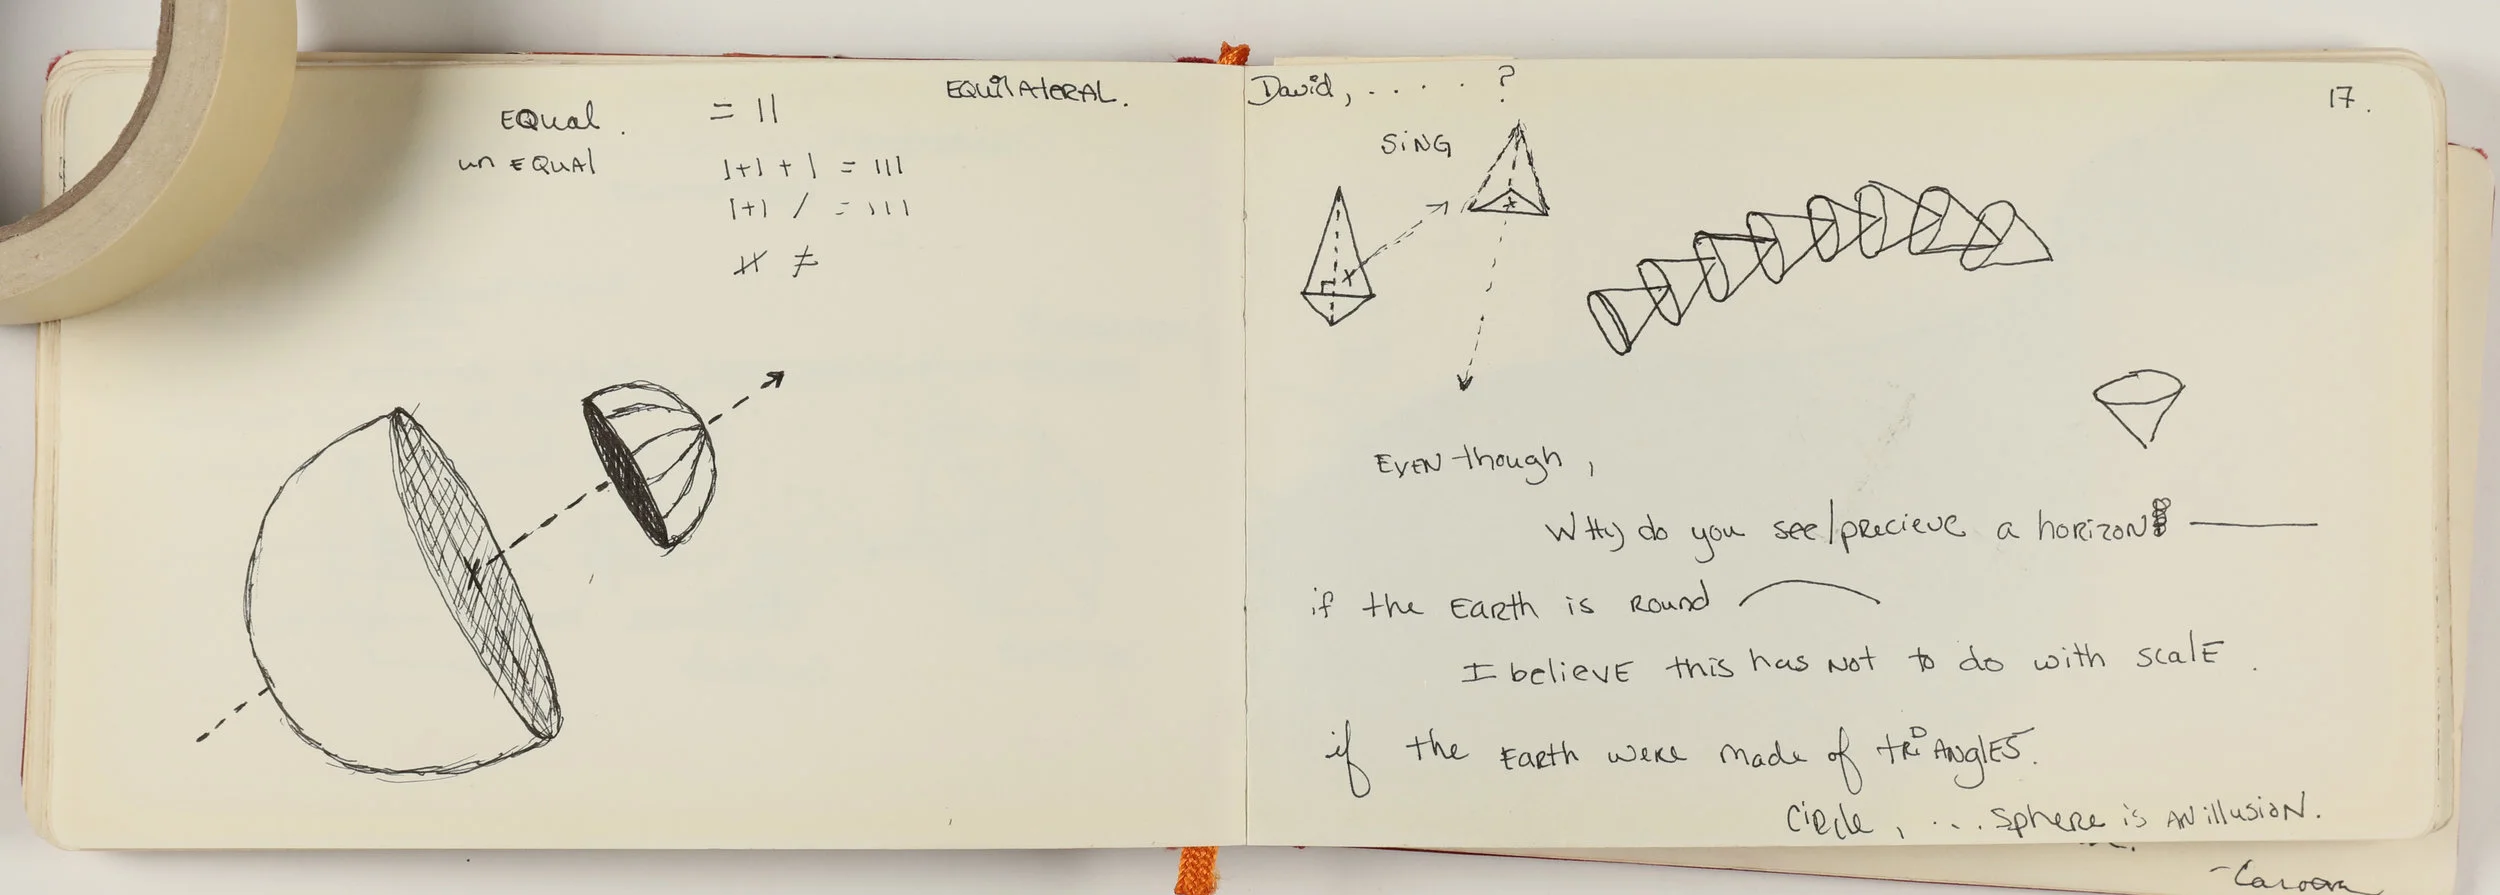 EQUAL.
= ||
unEQUAL
1+1+1 = |||
1+1 / = |||
≠
EQUILATERAL.
David, ..... ?
17.
SiNG
EVEN though,
WHy do you see/precieve a horizon
if the EARTH is ROUND
I beliEVE this has NOT to do with scalE.
if the EARTH were made of tRiANglES.
CiRcle, ... sphere is AN illusioN.